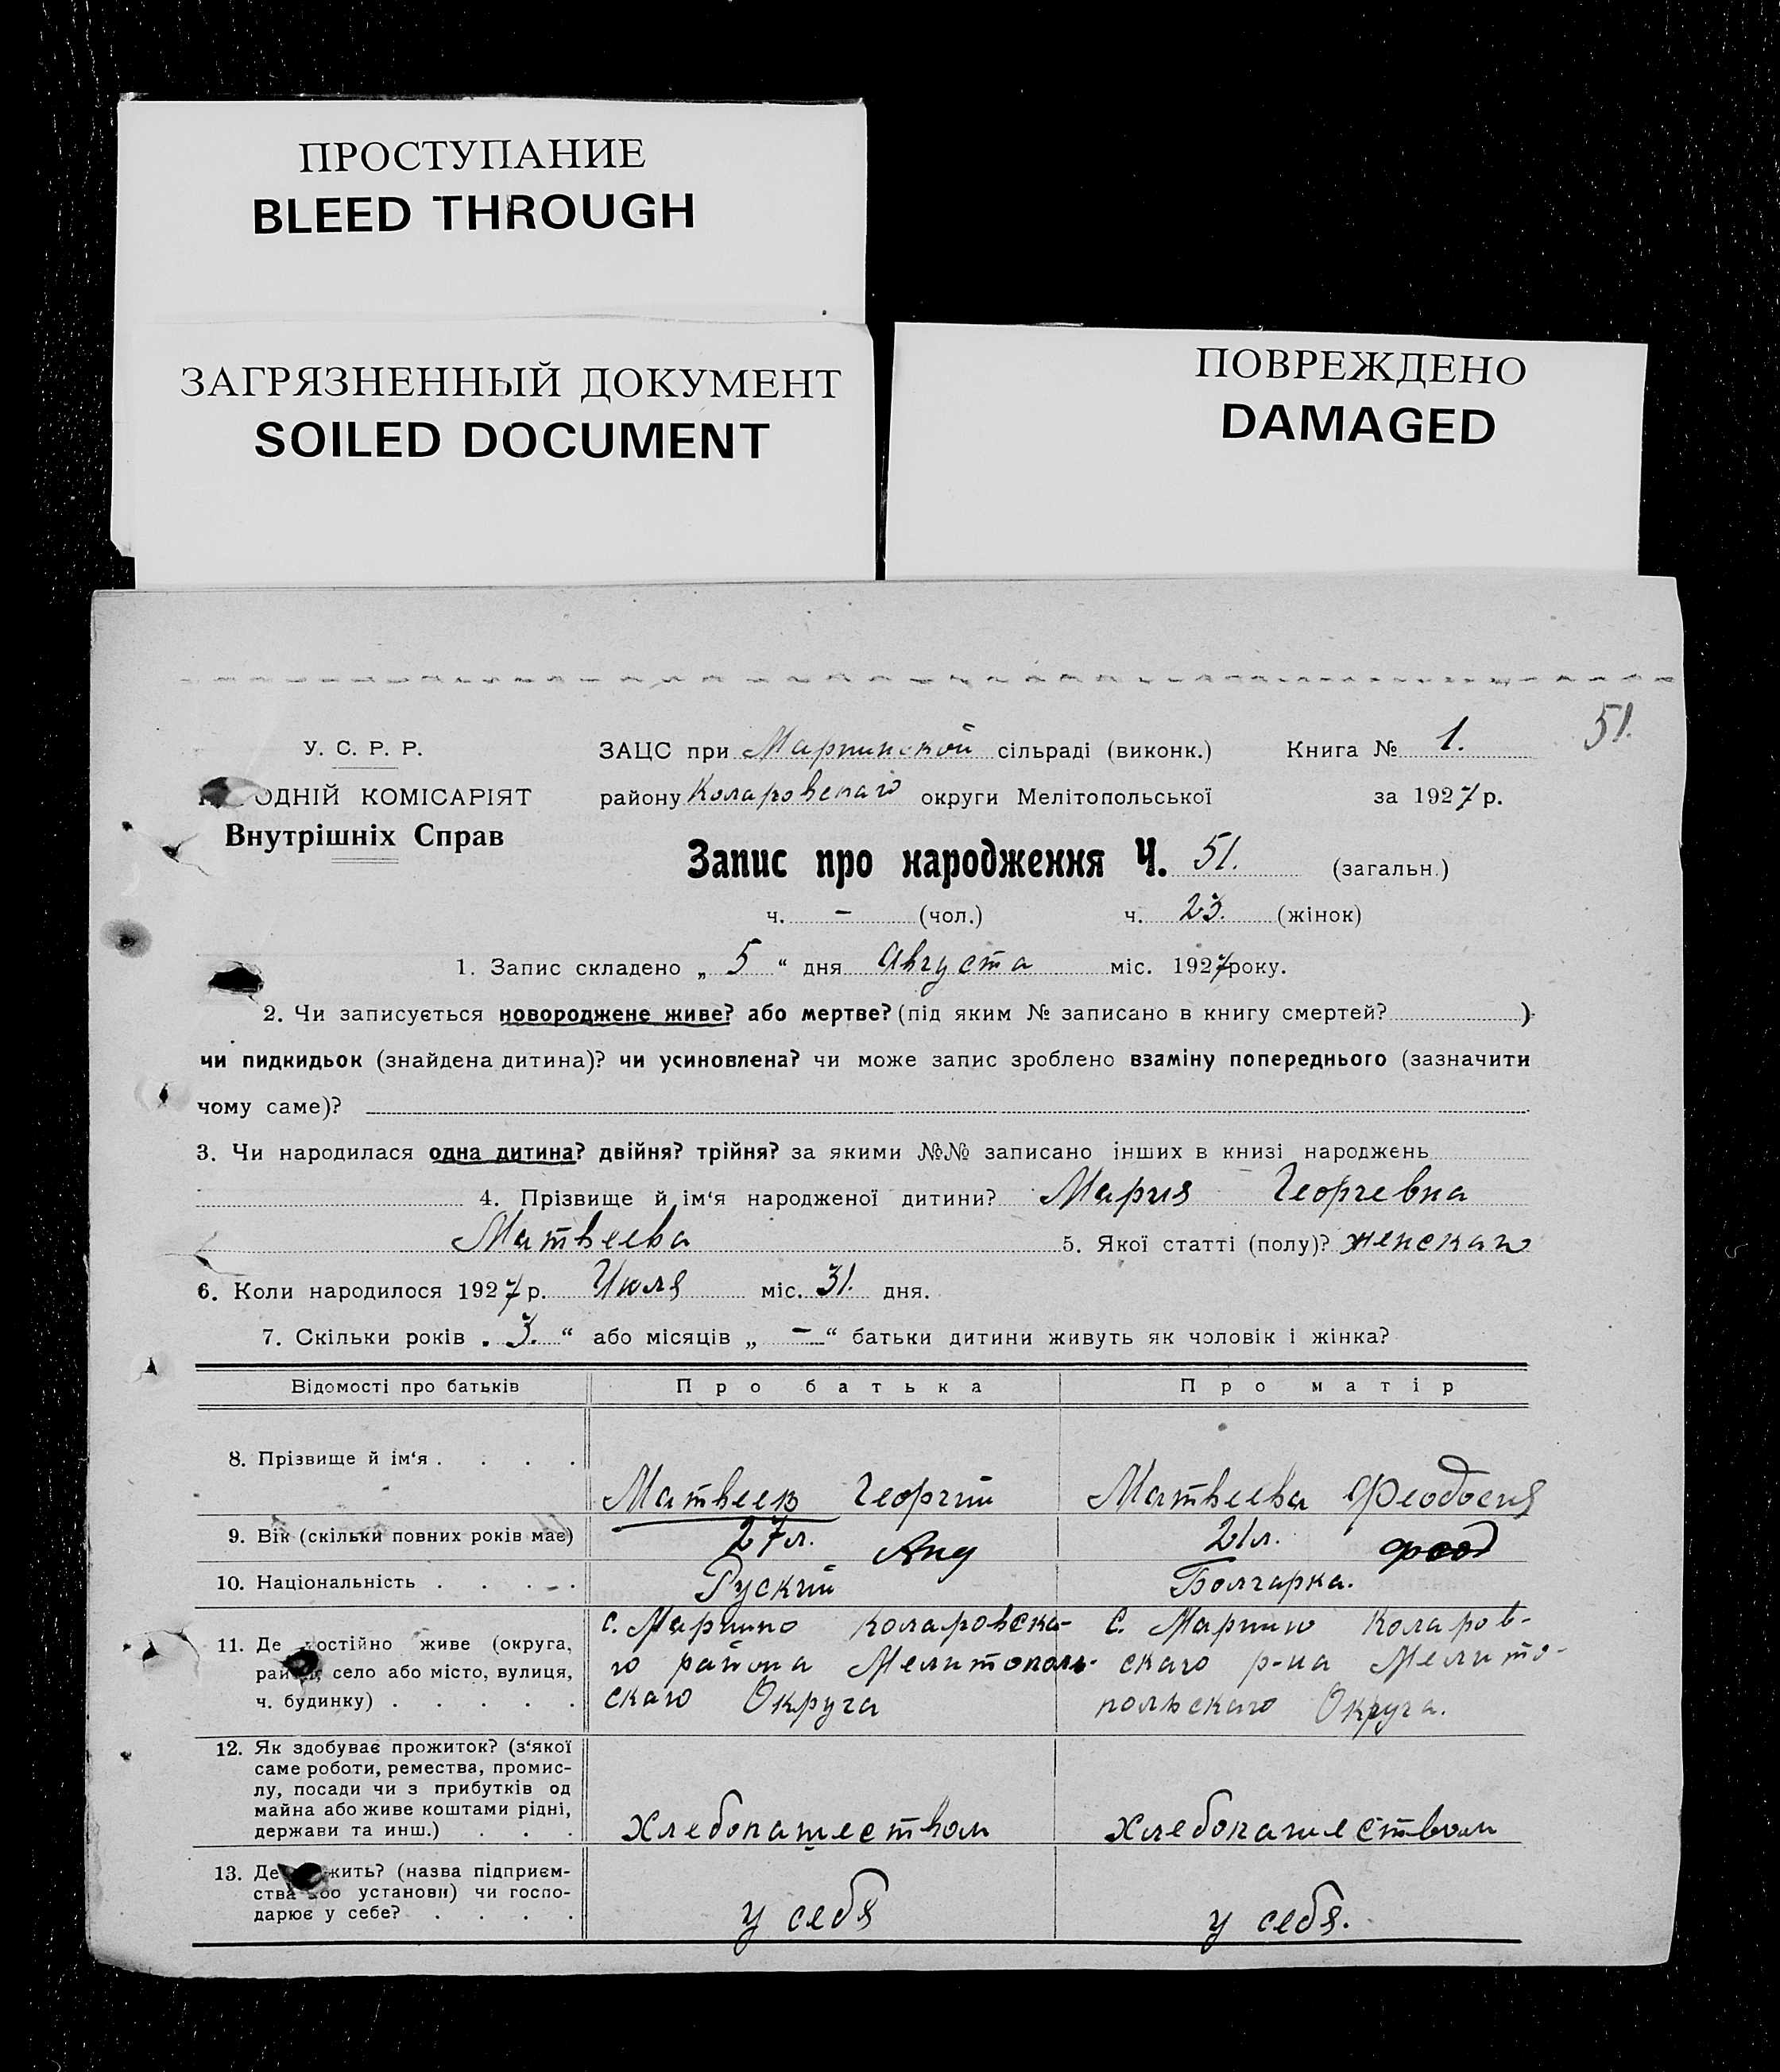 ПРОСТУПАНИЕ
BLEED THROUGH
ЗАГРЯЗНЕННЫЙ ДОКУМЕНТ
SOILED DOCUMENT
ПОВРЕЖДЕНО
DAMAGED
51.
У. С. Р. Р.
ОДНІЙ КОМІСАРІЯТ
Внутрішніх Справ
ЗАЦС при Марпинской сільраді (виконк.) Книга № 1.
району Коларовскаго округи Мелітопольської за 1927 р.
Запис про народження Ч. 51. (загальн.)
ч. – (чол.) ч. 23. (жінок)
1. Запис складено „ 5 “ дня Августа міс. 1927 року.
2. Чи записується новороджене живе? або мертве? (під яким № записано в книгу смертей? )
чи пидкидьок (знайдена дитина)? чи усиновлена? чи може запис зроблено взаміну попереднього (зазначити
чому саме)?
3. Чи народилася одна дитина? двійня? трійня? за якими №№ записано інших в книзі народжень
4. Прізвище й ім‘я народженої дитини? Мария Георгевна
Матвеева 5. Якої статті (полу)? женскаго
6. Коли народилося 1927 р. Июля міс. 31. дня.
7. Скільки років „ 3. “ або місяців „ – “ батьки дитини живуть як чоловік і жінка?
Відомості про батьків Про батька Про матір
8. Прізвище й ім‘я . . . .
Матвеев Георгий Матвеева Феодосия
9. Вік (скільки повних років має) 27 л. Анд 21 л.
10. Національність . . . . . Руский Болгарка.
11. Де остійно живе (округа,
рай село або місто, вулиця,
ч. будинку) . . . . .
с. Марпино Коларовска-
го района Мелитополь-
скаго Округа
с. Марпино Коларов-
скаго р-на Мелито-
польскаго Округа.
12. Як здобуває прожиток? (з‘якої
саме роботи, ремества, промис-
лу, посади чи з прибутків од
майна або живе коштами рідні,
держави та инш.) . . .
хлебопашеством хлебопашеством
13. Де жить? (назва підприєм-
ства або установи) чи госпо-
дарює у себе? . . . .
у себя у себя.